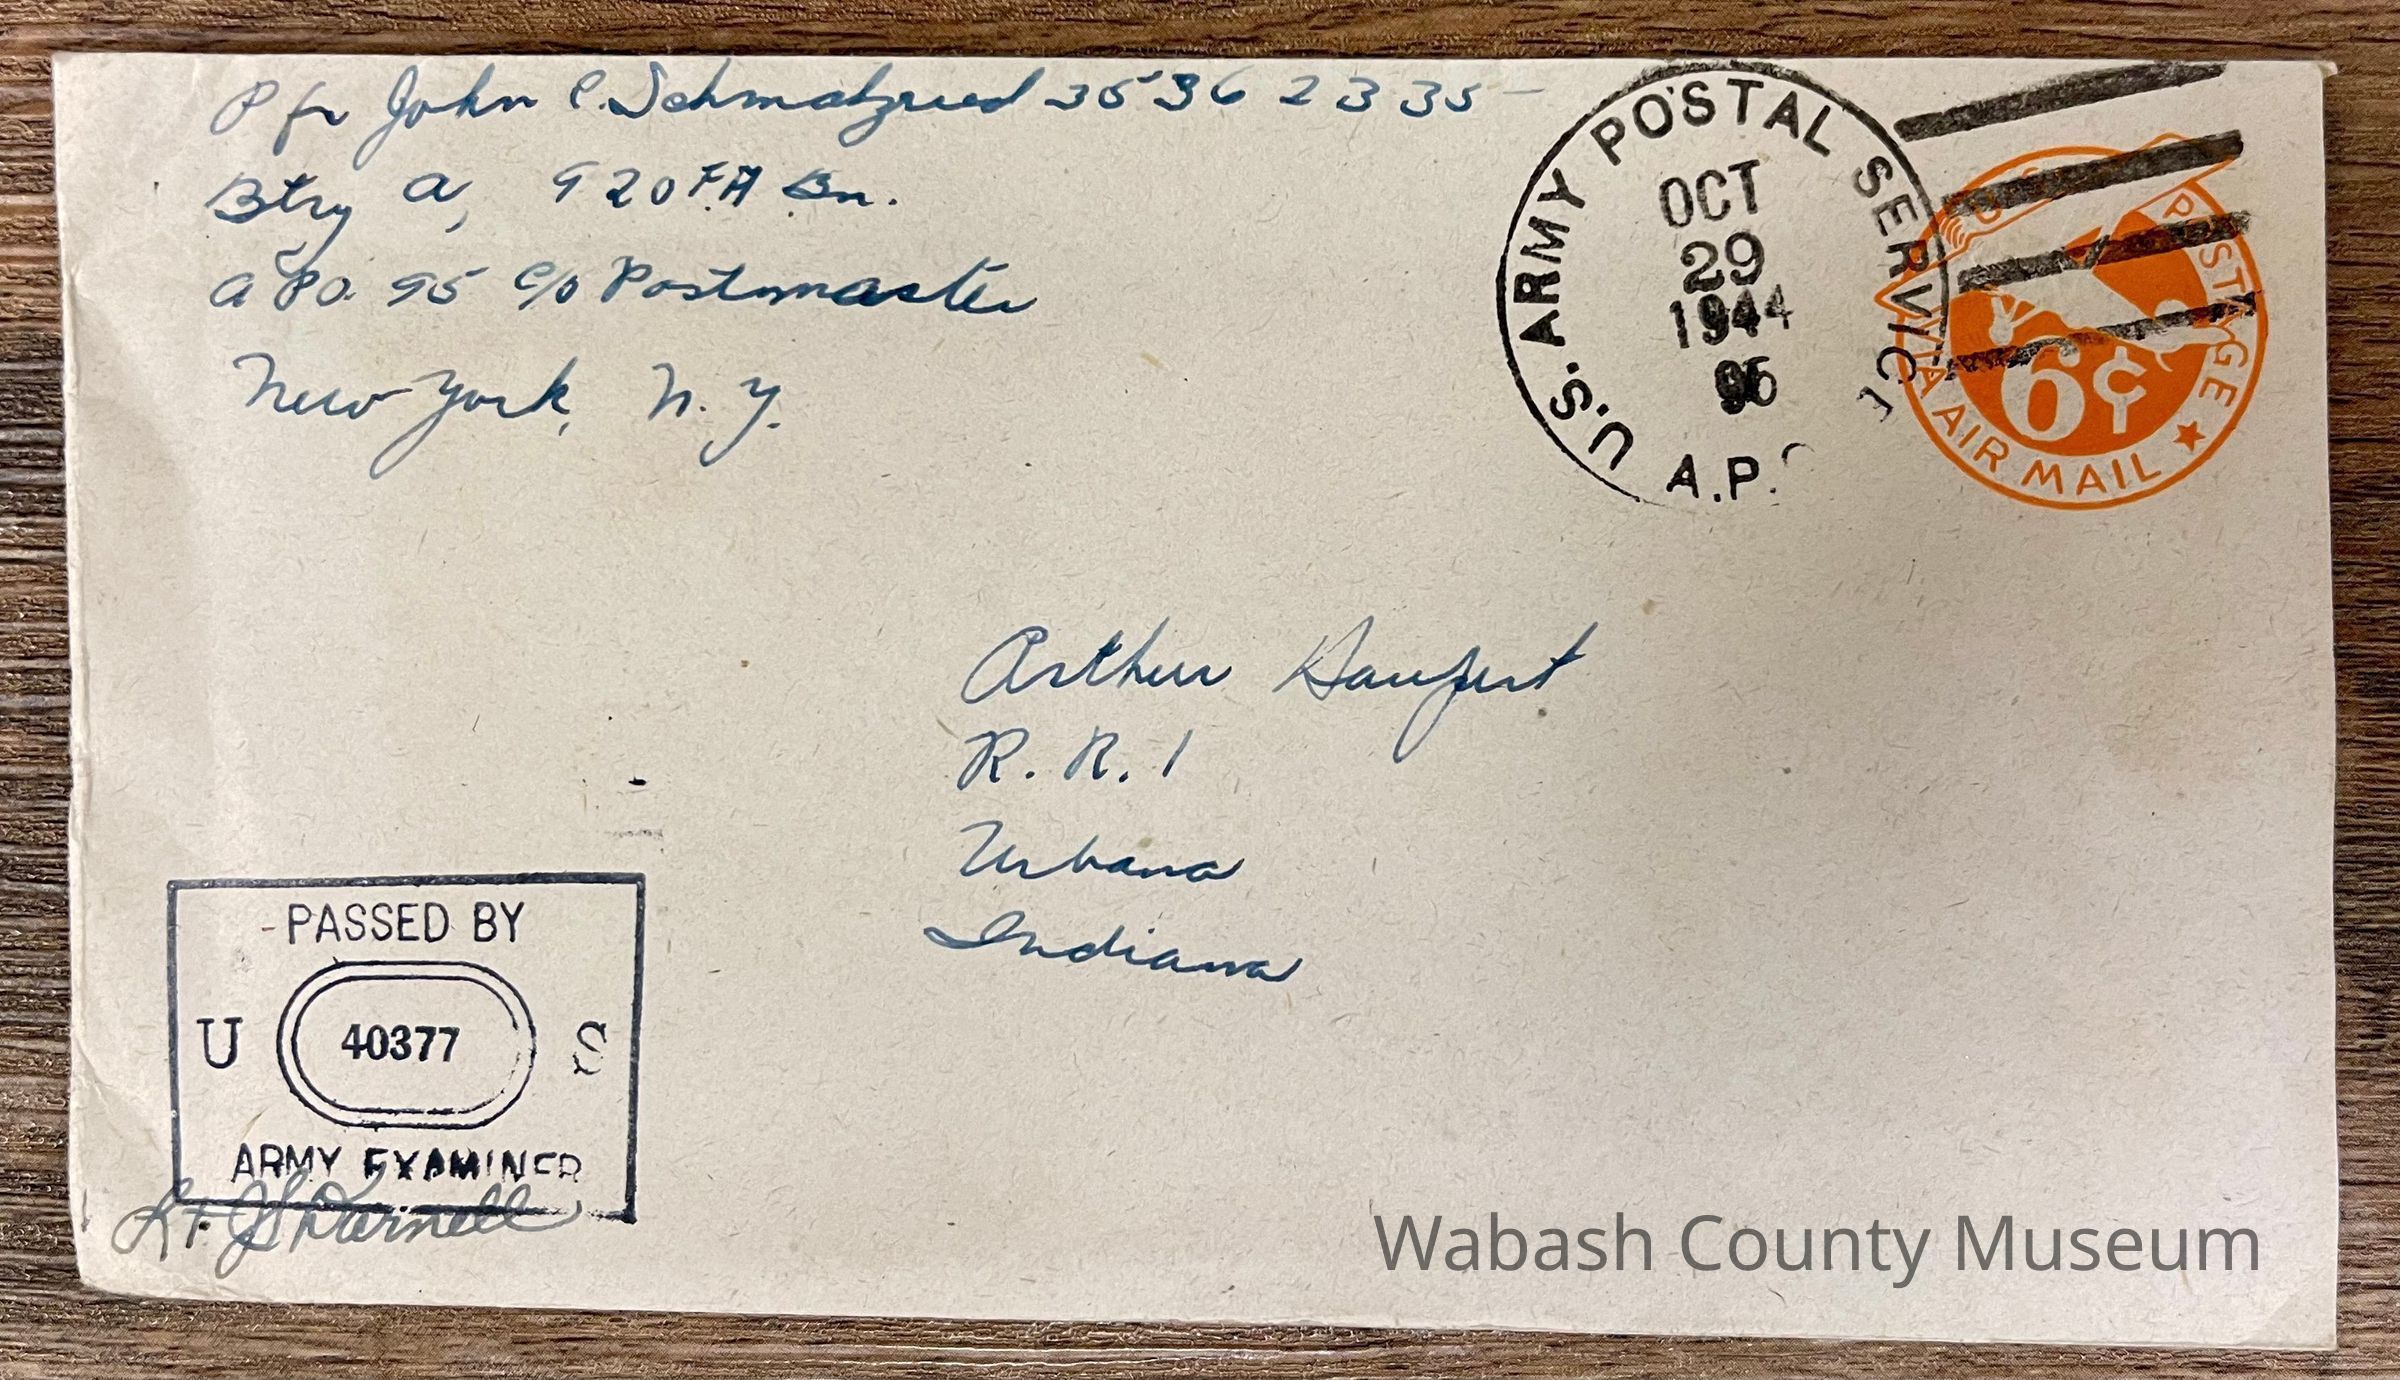 Pfc John C. Schmalzried 35362335
Btry A, 920 F.A. Bn.
A.P.O. 95 c/o Postmaster
New York, N.Y.
U.S. ARMY POSTAL SERVICE
OCT
29
1944
95
A.P.
POSTAGE
6¢
VIA AIR MAIL
Arthur Haupert
R.R. 1
Urbana
Indiana
PASSED BY
U 40377 S
ARMY EXAMINER
Lt.
Wabash County Museum